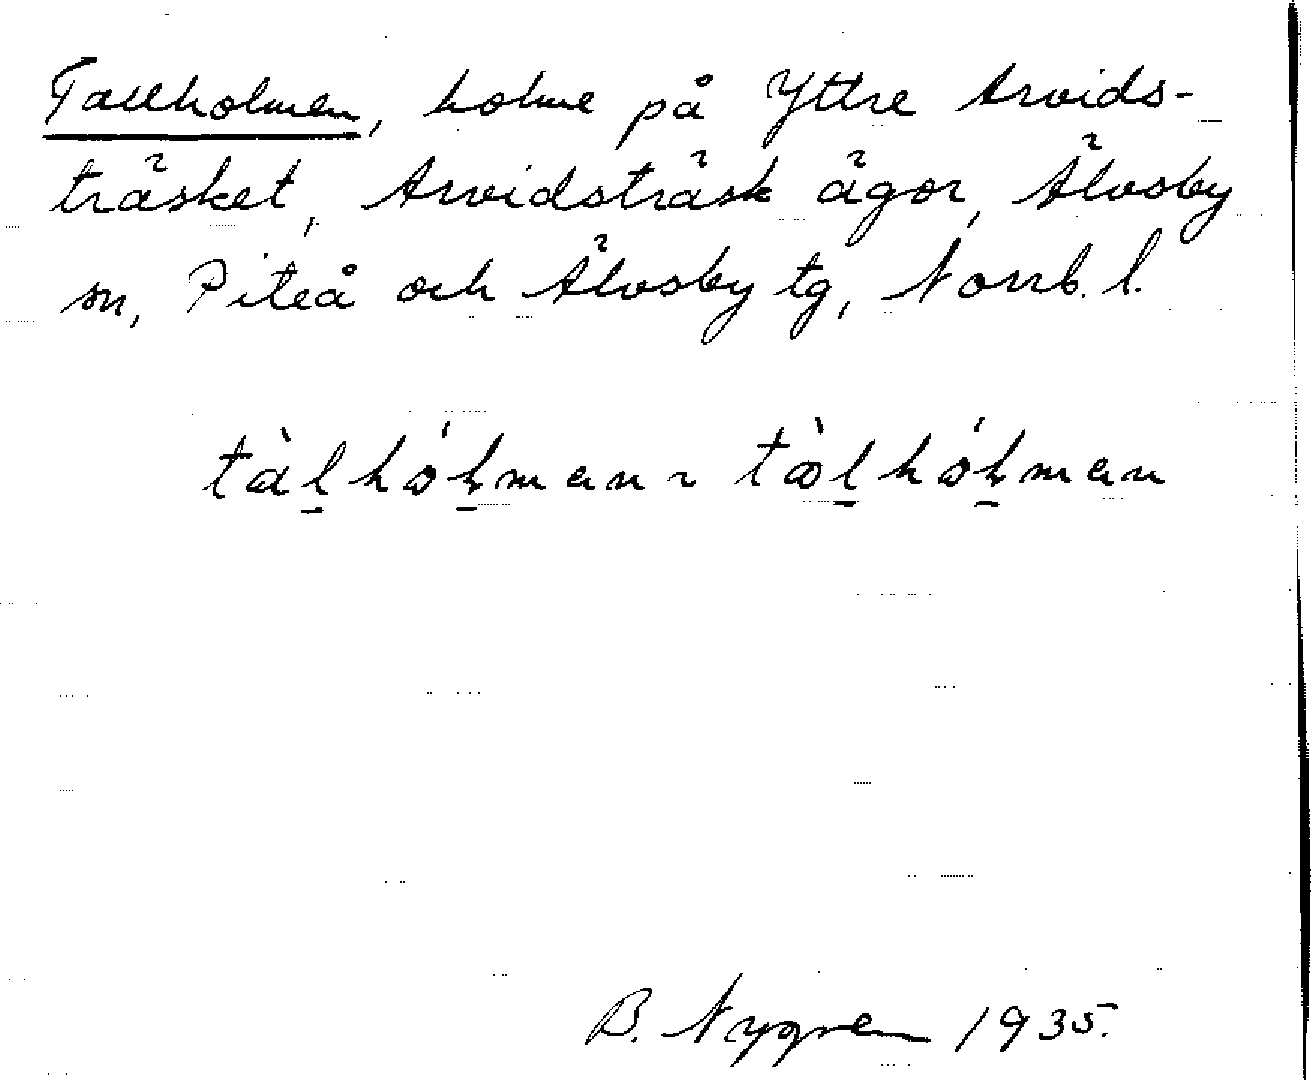 Tallholmen, holme på Yttre Arvids-
träsket, Arvidsträsk ägor, Älvsby
sn, Piteå och Älvsby tg, Norrb. l.
tàl̲hól̲man ~ tòl̲hól̲man
B. Nygren 1935.